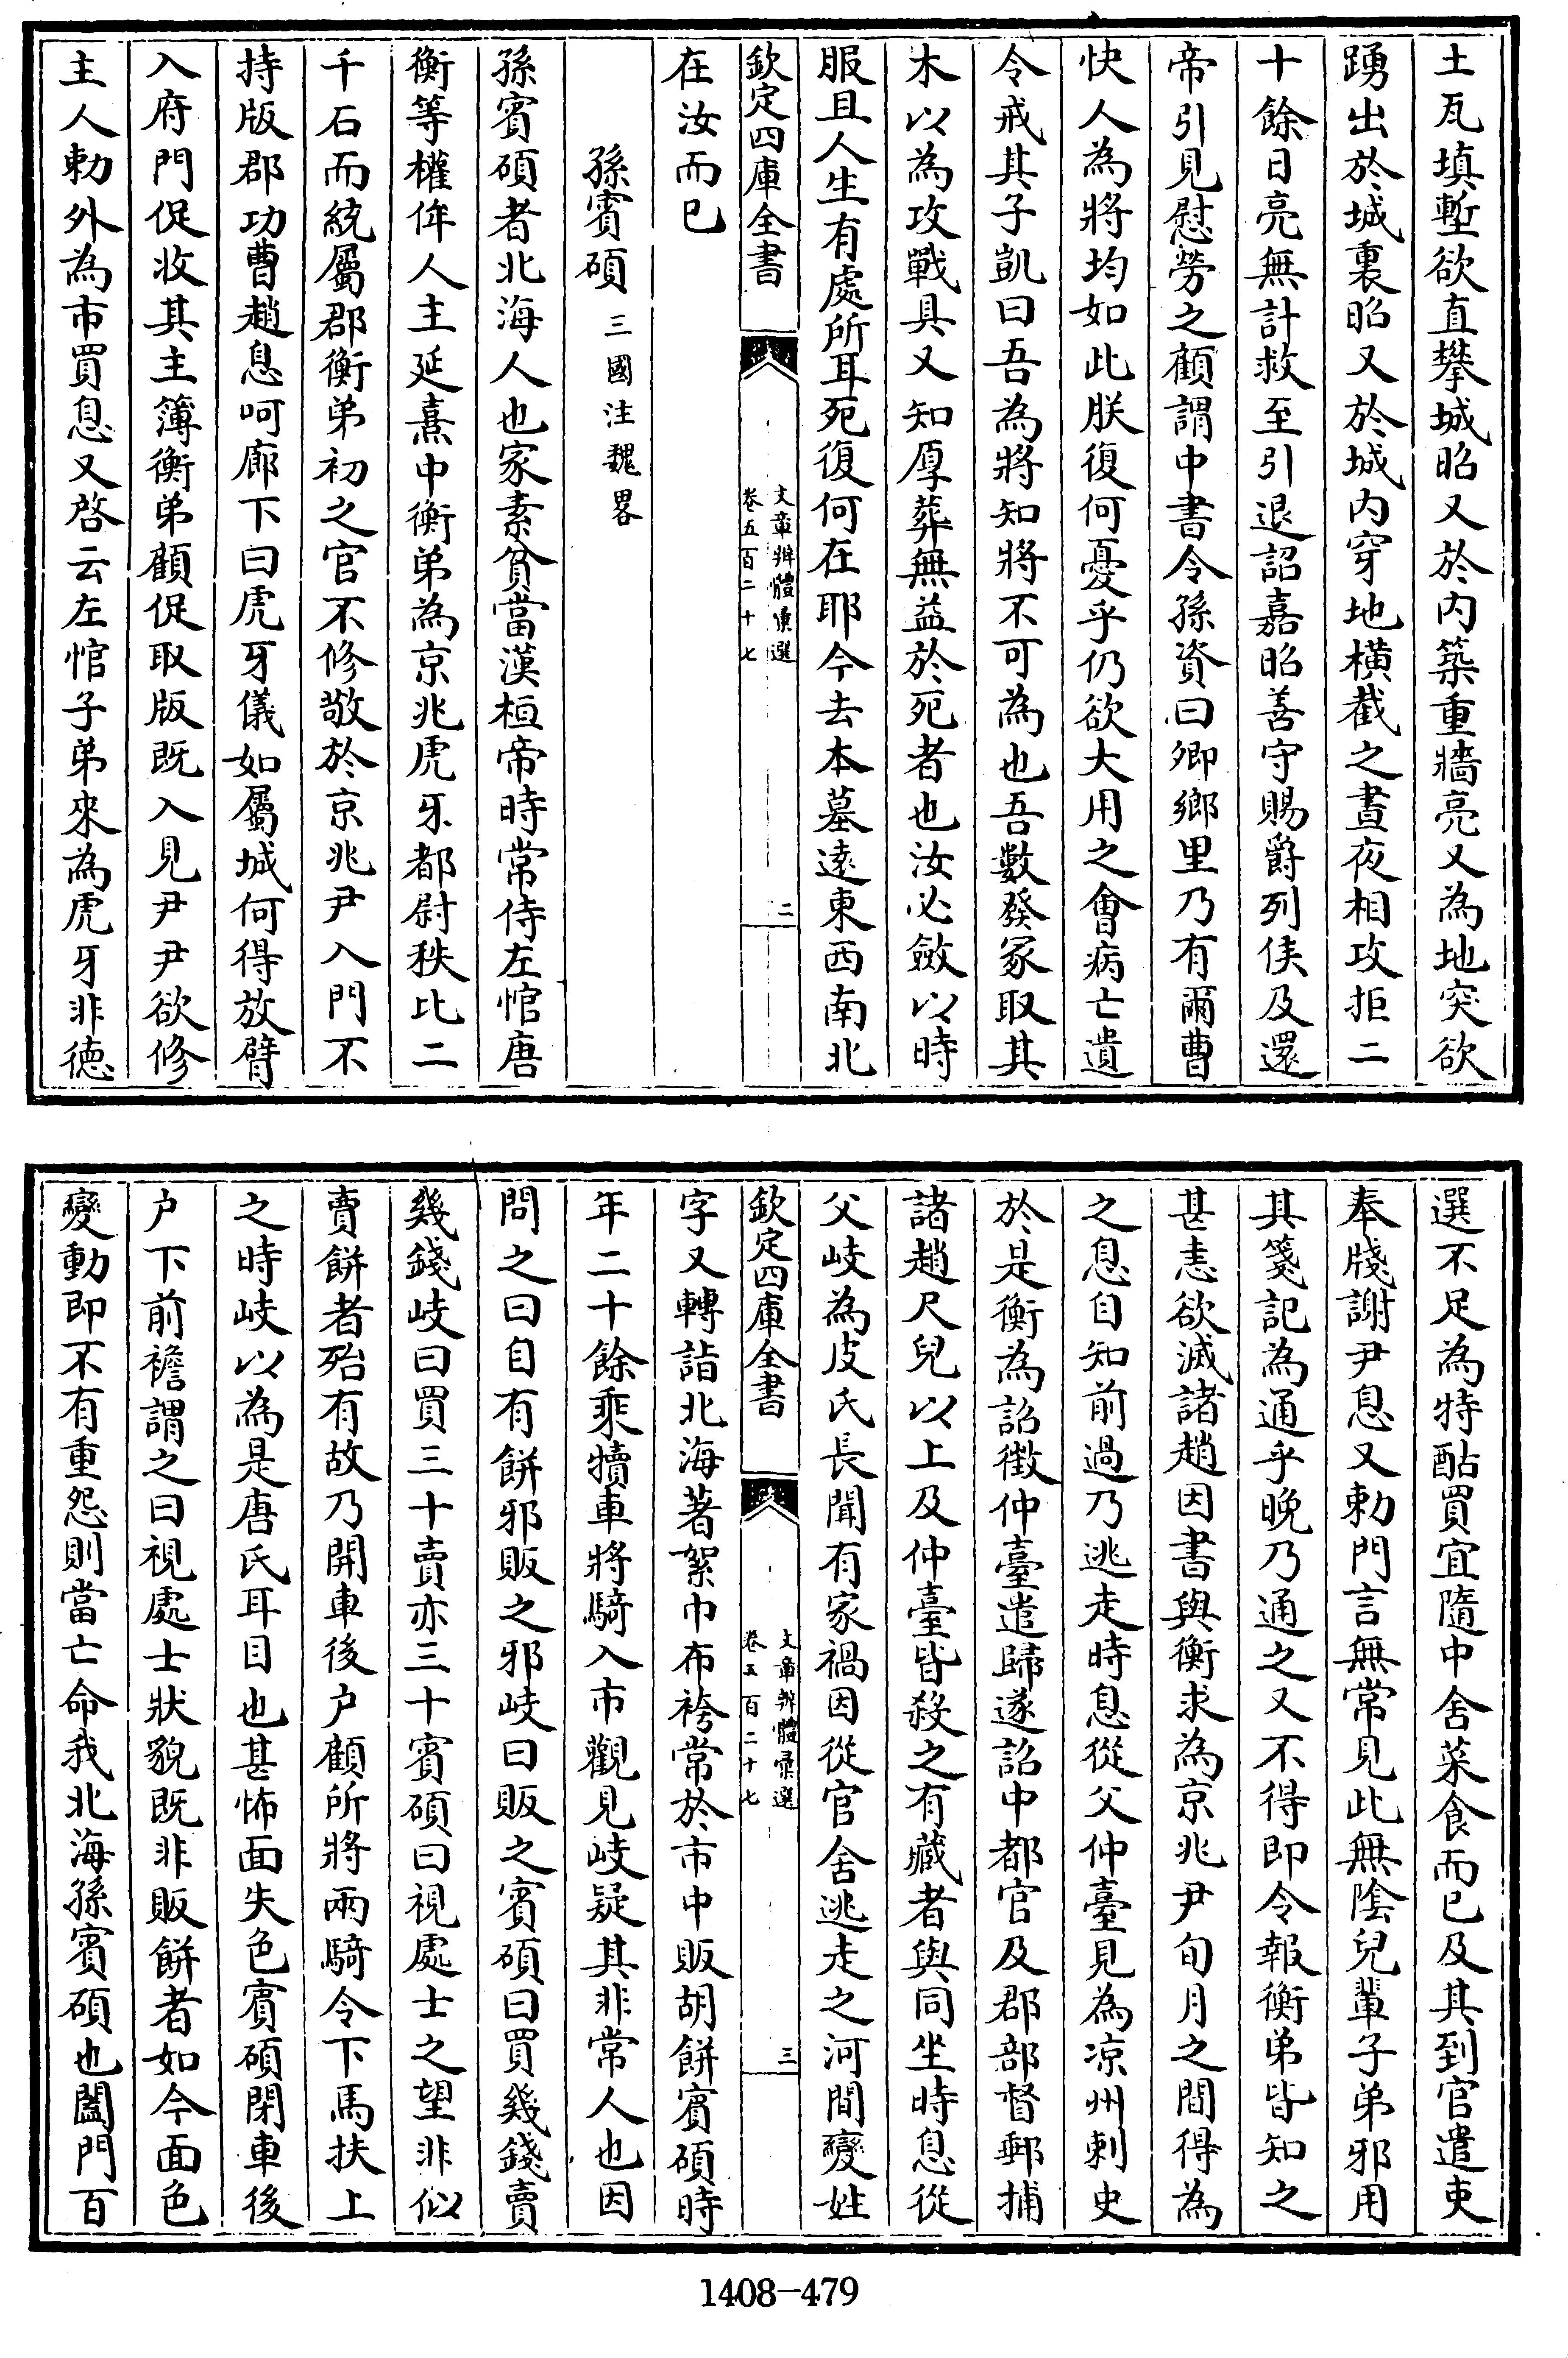 土瓦填塹欲直攀城昭又於内築重牆亮又為地突欲
踴出於城裏昭又於城内穿地横截之晝夜相攻拒二
十餘日亮無計救至引退詔嘉昭善守賜爵列侯及還
帝引見慰勞之顧謂中書令孫資曰卿鄉里乃有爾曹
快人為將均如此朕復何憂乎仍欲大用之會病亡遺
令戒其子凱曰吾為將知將不可為也吾數發冢取其
木以為攻戰具又知厚葬無益於死者也汝必斂以時
服且人生有處所耳死復何在耶今去本墓遠東西南北
欽定四庫全書
文章辨體彙選
卷五百二十七
二
在汝而已
孫賓碩 三國注魏畧
孫賓碩者北海人也家素貧當漢桓帝時常侍左悺唐
衡等權侔人主延熹中衡弟為京兆虎牙都尉秩比二
千石而統屬郡衡弟初之官不修敬於京兆尹入門不
持版郡功曹趙息呵廊下曰虎牙儀如屬城何得放臂
入府門促收其主簿衡弟顧促取版既入見尹尹欲修
主人勅外為市買息又啓云左悺子弟來為虎牙非德
選不足為特酤買宜隨中舍菜食而已及其到官遣吏
奉牋謝尹息又勅門言無常見此無陰兒輩子弟邪用
其箋記為通乎晚乃通之又不得即令報衡弟皆知之
甚恚欲滅諸趙因書與衡求為京兆尹旬月之間得為
之息自知前過乃逃走時息從父仲臺見為凉州刺史
於是衡為詔徵仲臺遣歸遂詔中都官及郡部督郵捕
諸趙尺兒以上及仲臺皆殺之有藏者與同坐時息從
父岐為皮氏長聞有家禍因從官舍逃走之河間變姓
欽定四庫全書
文章辨體彙選
卷五百二十七
三
字又轉詣北海著絮巾布袴常於市中販胡餅賓碩時
年二十餘乘犢車將騎入市觀見岐疑其非常人也因
問之曰自有餅邪販之邪岐曰販之賓碩曰買幾錢賣
幾錢岐曰買三十賣亦三十賓碩曰視處士之望非似
賣餅者殆有故乃開車後户顧所將兩騎令下馬扶上
之時岐以為是唐氏耳目也甚怖面失色賓碩閉車後
户下前襜謂之曰視處士狀貌既非販餅者如今面色
變動即不有重怨則當亡命我北海孫賓碩也闔門百
1408-479